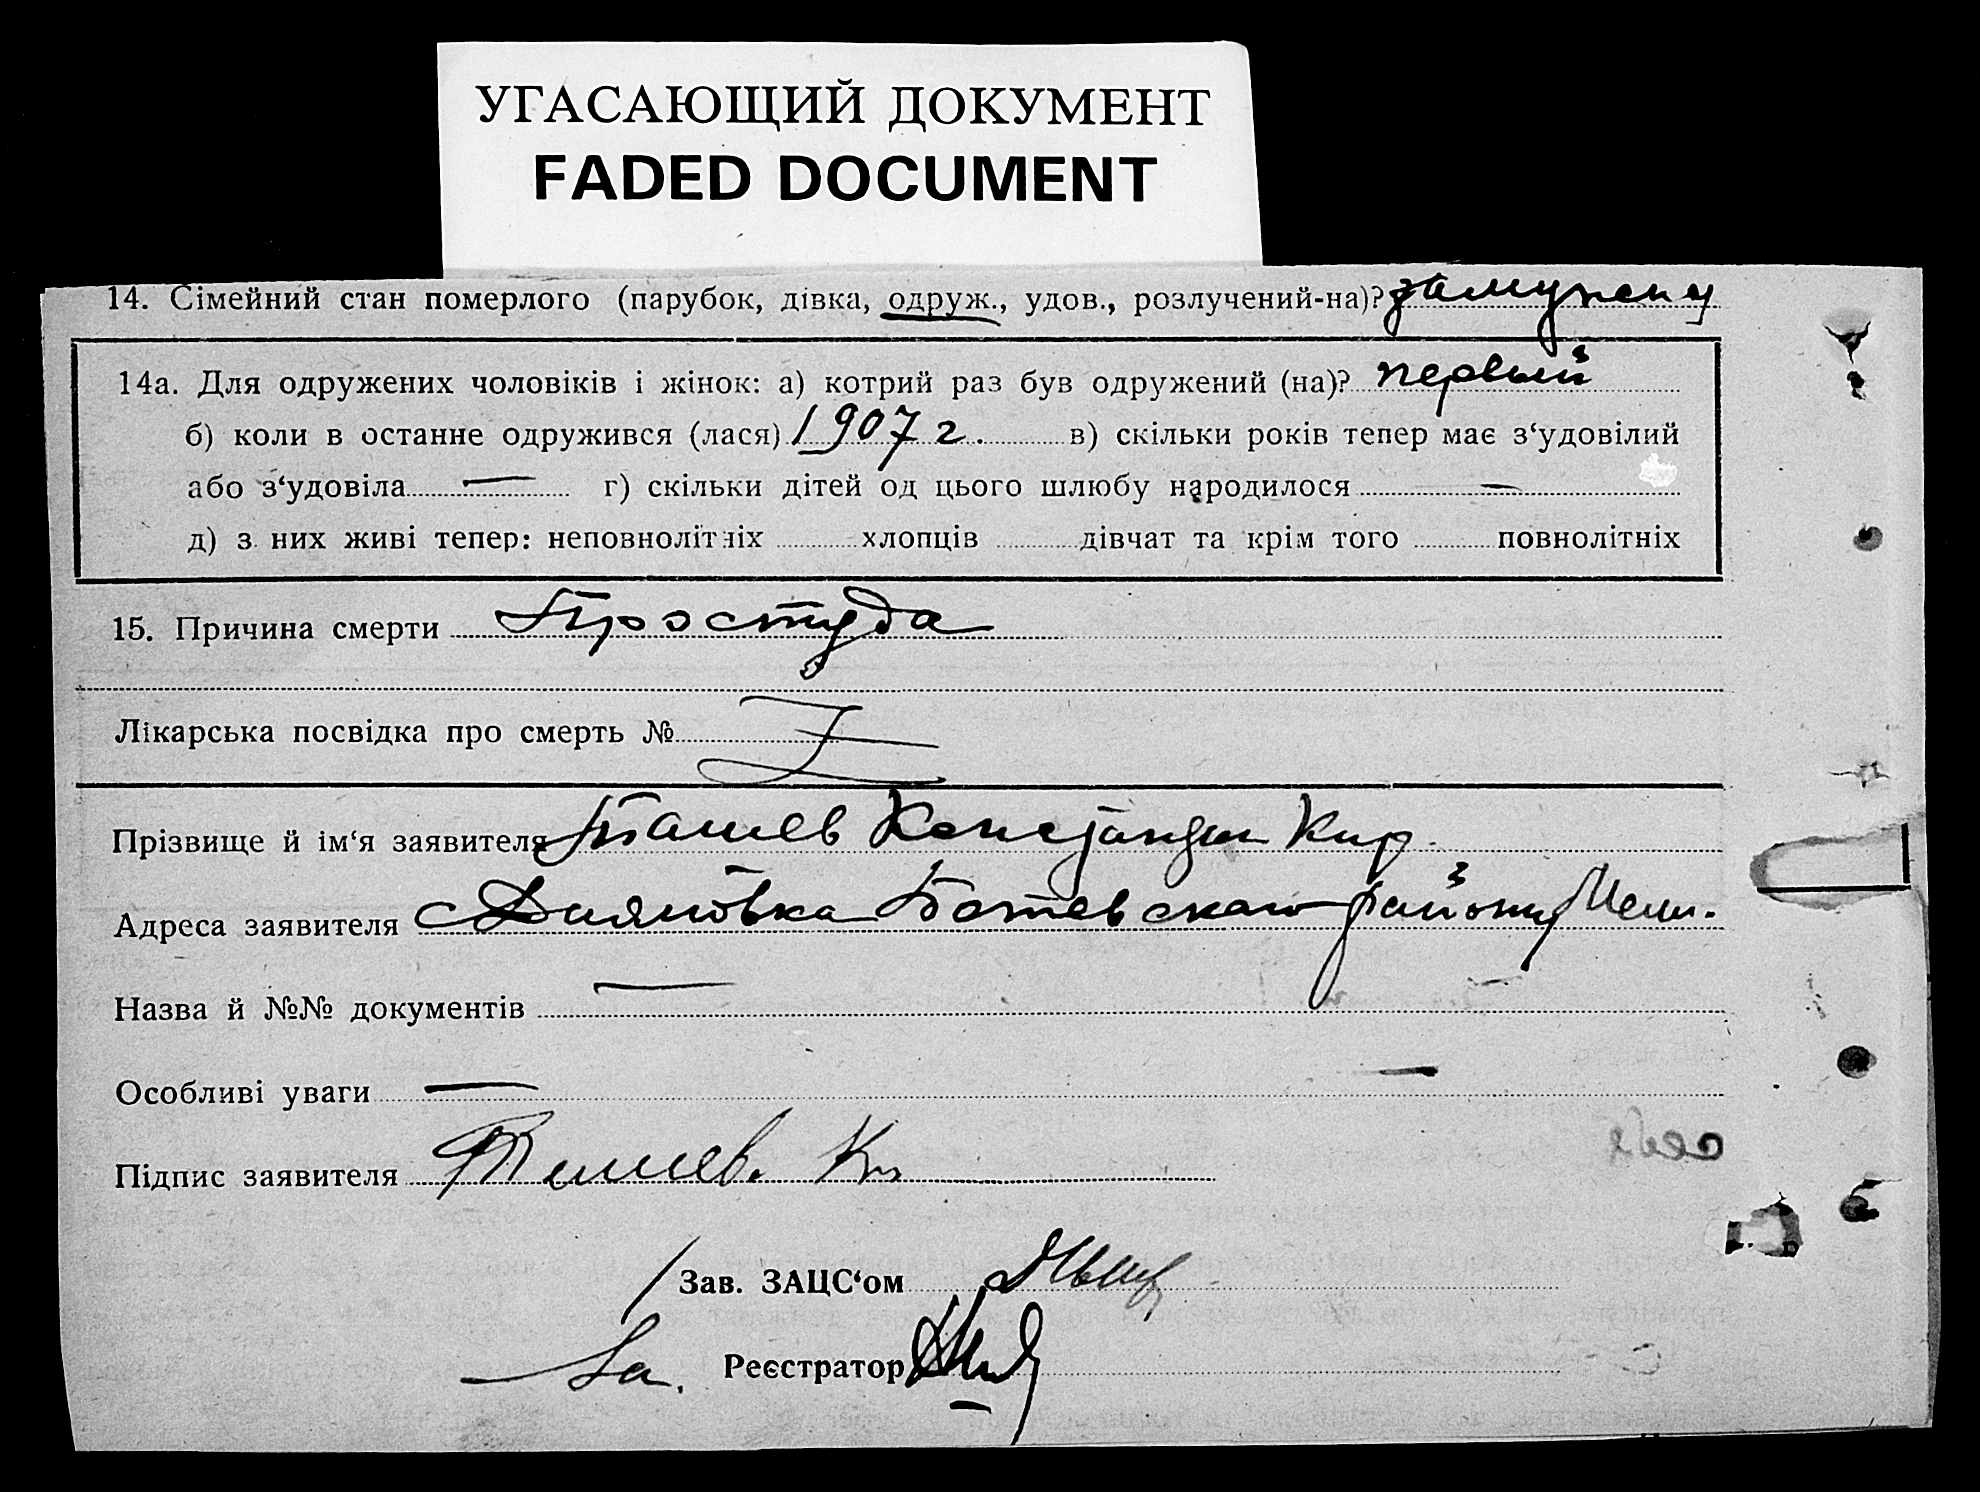 УГАСАЮЩИЙ ДОКУМЕНТ
FADED DOCUMENT
14. Сімейний стан померлого (парубок, дівка, одруж., удов., розлучений-на)?
14а. Для одружених чоловіків і жінок: а) котрий раз був одружений (на)? первый
б) коли в останне одружився (лася) 1907 г. в) скільки років тепер має з‘удовілий
або з‘удовіла — г) скільки дітей од цього шлюбу народилося —
д) з них живі тепер: неповнолітніх хлопців дівчат та крім того повнолітніх
15. Причина смерти Простуда
Лікарська посвідка про смерть №
Прізвище й ім‘я заявителя Ташев Константин Кир.
Адреса заявителя с. Дияновка Ботевскаго района Мели.
Назва й №№ документів —
Особливі уваги —
Підпис заявителя Ташев. К
Зав. ЗАЦС‘ом
Реєстратор